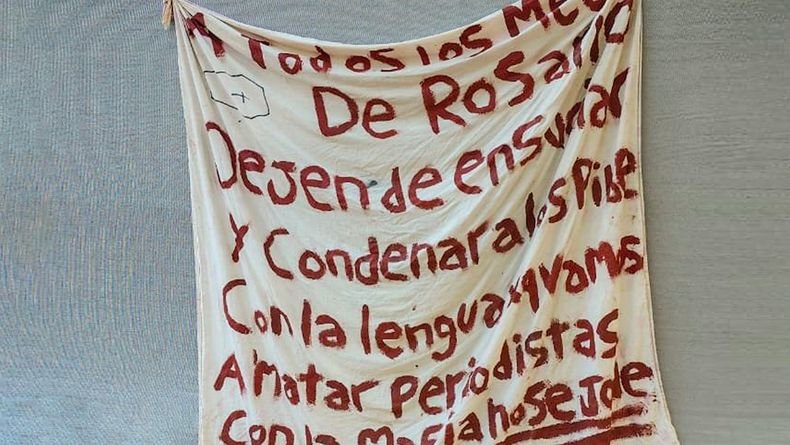 A Todos los Med
De Rosario
Dejen de ensuciar
Y Condenar a los Pibe
Con la lengua xq vamos
A Matar Periodistas
Con la Mafia no se Jode